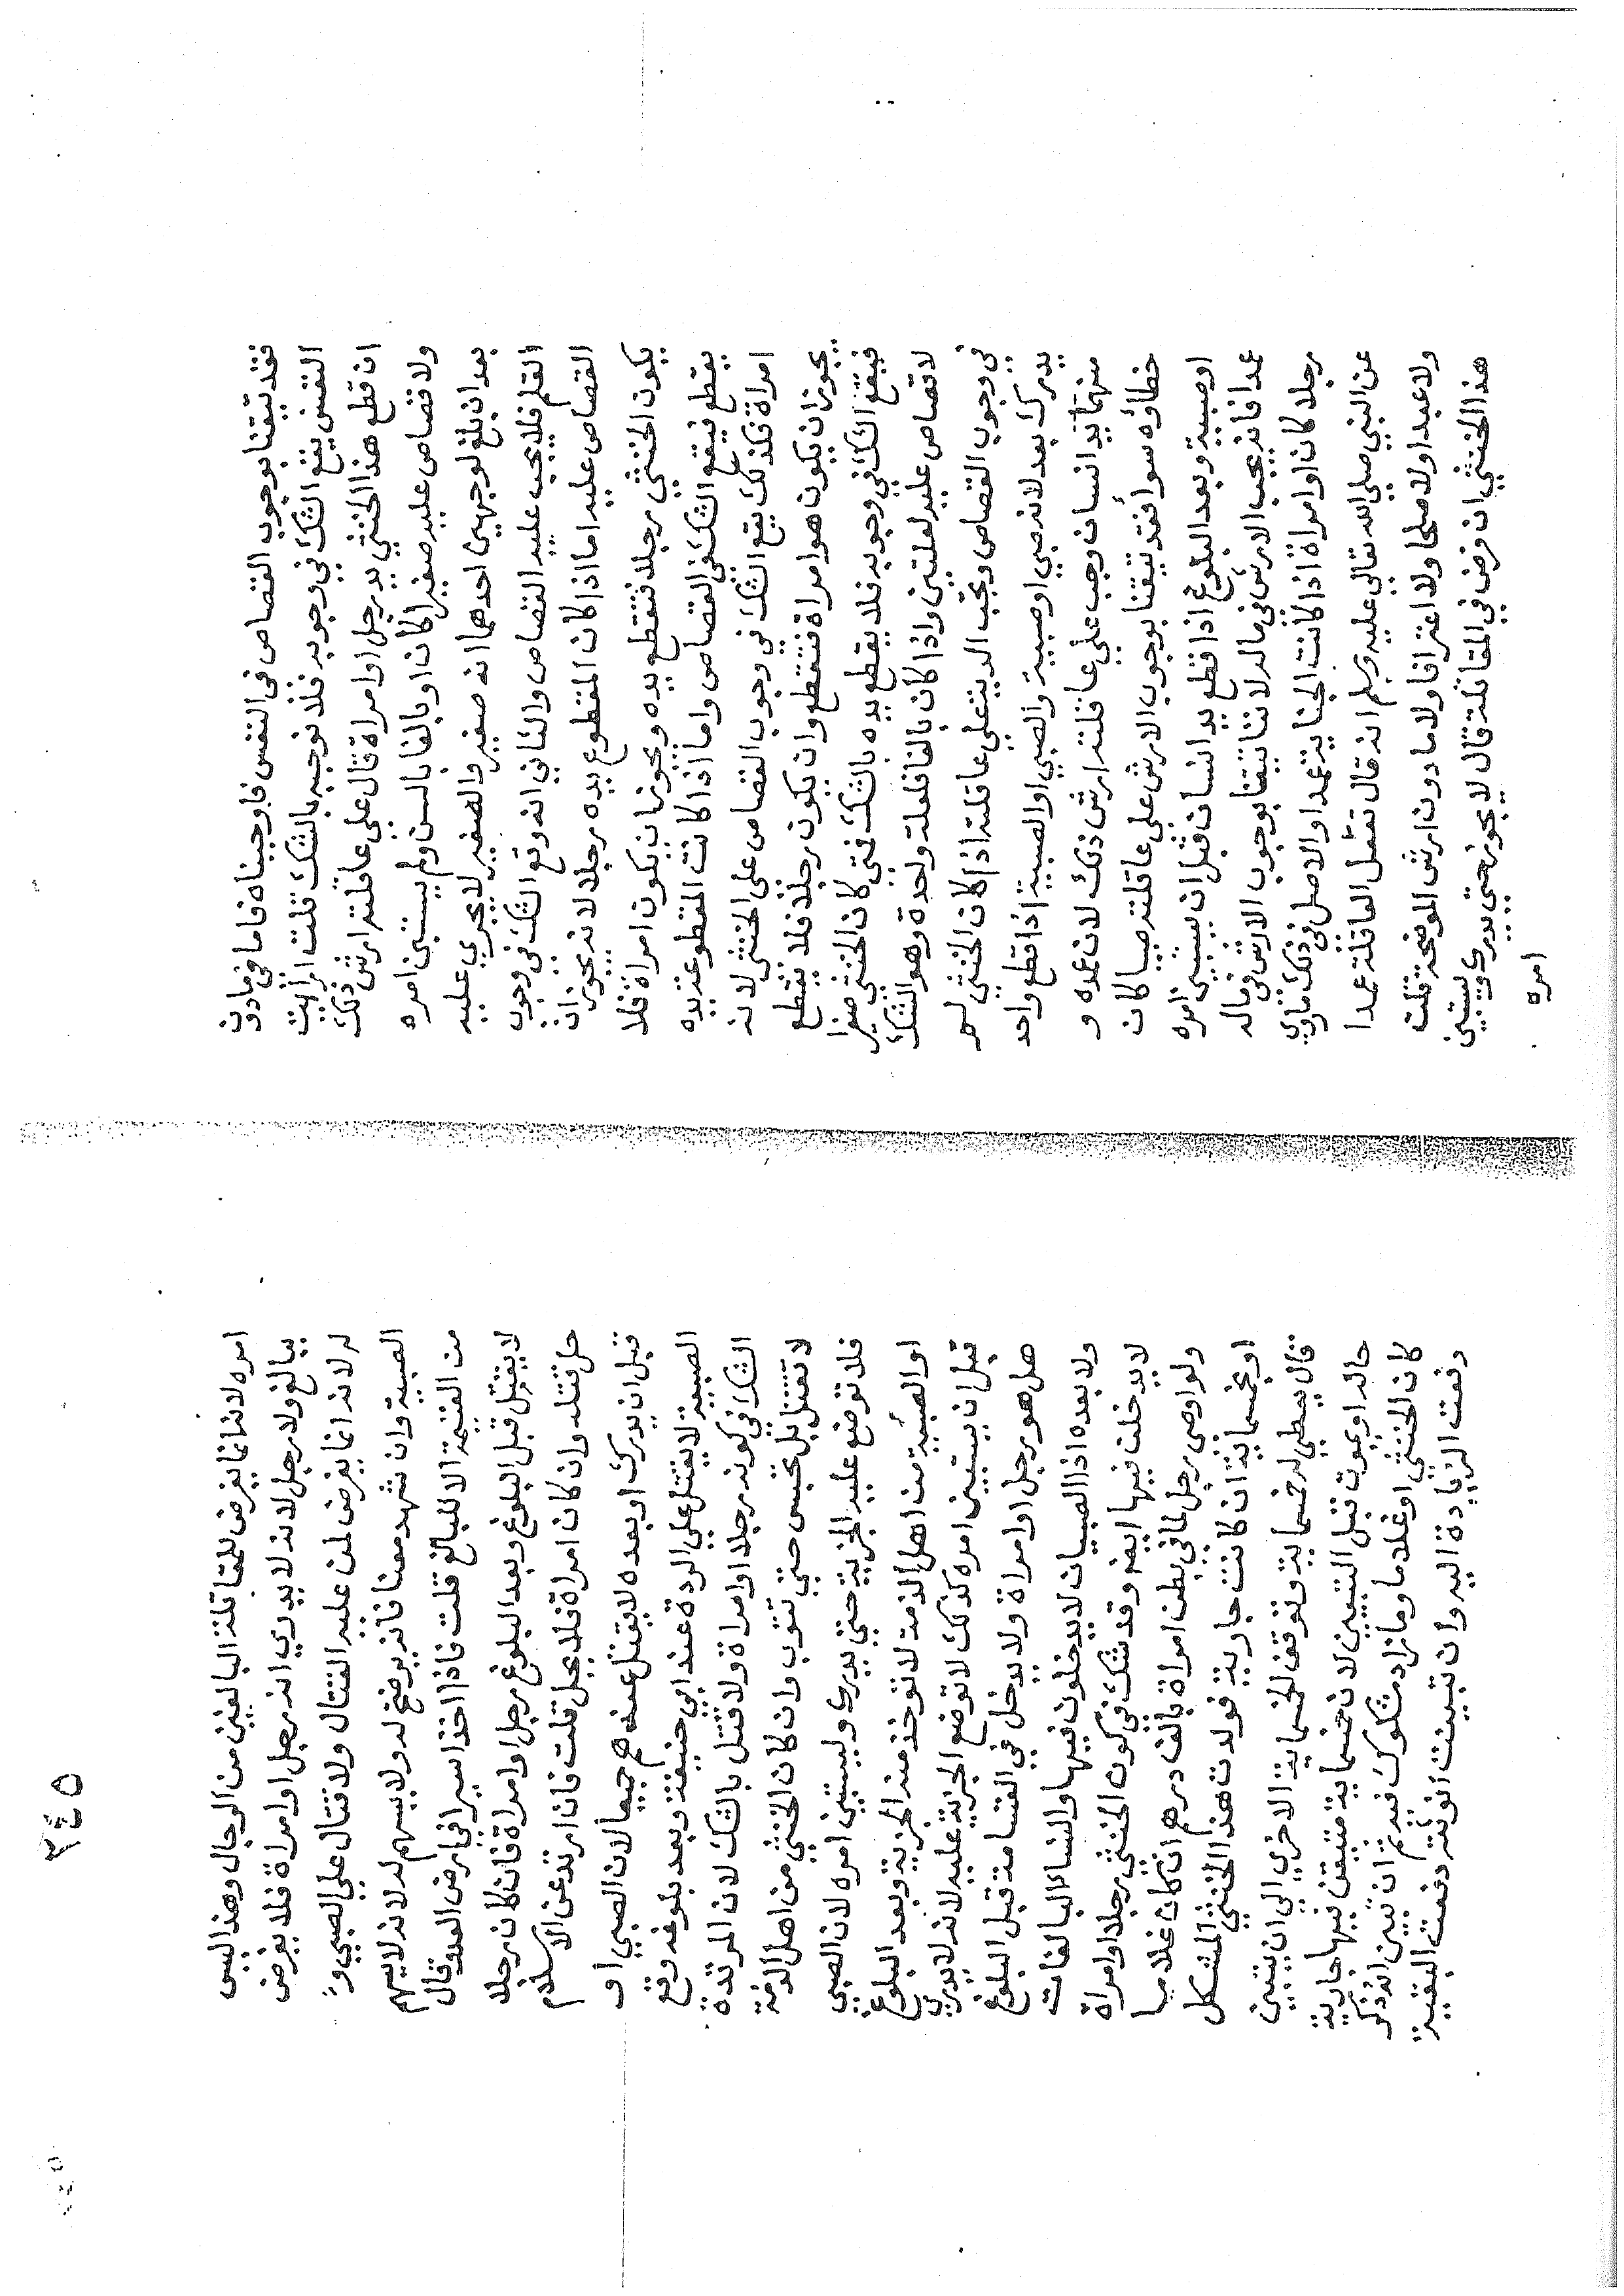 فقد تيقنا بوجوب القصاص فى النفس فاوجبناه فاما في مادون
النفس يقع الشك في وجوبه فلا نوجبه بالشك قلت ارايت
ان قطع هذا الخنثي يد رجل او امراة قال علي عاقلته ارش ذلك
ولا قصاص عليه صغيرا كان او بالغا بالسن ولم يستبن امره
بعد ان بلغ لوجهين احدهما انه صغير والصغير لا يجري عليه
القلم فلا يجب عليه القصاص والثاني انه وقع الشك في وجوب
القصاص عليه اما اذا كان المقطوع يده رجلا لانه يجوز ان
يكون الخنثي رجلا فتقطع يده ويجوز ان يكون امراة فلا
يقطع فيقع الشك في القصاص واما اذا كانت المقطوعة يده
امراة فكذلك يقع الشك في وجوب القصاص على الخنثى لانه
يجوز ان يكون هو امراة فتقطع وان يكون رجلا فلا تقطع
فيقع الشك في وجوبه فلا يقطع يده بالشك فمتى كان الخنثي صغيرا
لا قصاص عليه لعلتين واذا كان بالغا فلعلة واحدة وهو الشك
في وجوب القصاص وتجب الدية علي عاقلته اذا كان الخنثي لم
يدرك بعد لانه صبي او صبية والصبي او الصبية اذا قطع واحد
منهما يد انسان وجب علي عاقلته ارش ذلك لان عمده و
خطاؤه سوا فقد تيقنا بوجوب الارش علي عاقلته صبيا كان
او صبية وبعد البلوغ اذا قطع يد انسان قبل ان يستبين امره
عمدا فانه يجب الارش في ماله لاننا تيقنا بوجوب الارش في ماله
رجلا كان او امراة اذا كانت الجناية عمدا والاصل في ذلك ما روي
عن النبي صلي الله تعالي عليه وسلم انه قال لا تعقل العاقلة عمدا
ولا عبدا ولا صلحا ولا اعترافا ولا ما دون ارش الموضحة قلت
هذا الخنثي ان فرض في المقاتلة قال لا يجوز حتى يدرك ويستبين
امره
امره لانه انما يفرض للمقاتلة البالغين من الرجال وهذا ليس
ببالغ ولا رجل لانه لا يدري انه رجل او امراة فلا يفرض
له لانه انما يفرض لمن عليه القتال ولا قتال علي الصبي و
الصبية وان شهد معنا فانه يرضخ له ولا يسهم له لانه لا يسهم
من الغنيمة الا للبالغ قلت فاذا اخذ اسيرا في ارض العدو قال
لا يقتل قبل البلوغ وبعد البلوغ رجل او امراة فان كان رجلا
حل قتله وان كان امراة فلا يحل قلت فان ارتد عن الاسلام
قبل ان يدرك او بعده لا يقتل عندهم جميعا لان الصبي او
الصبية لا يقتل علي الردة عند ابي حنيفة وبعد بلوغه وقع
الشك في كونه رجلا او امراة ولا تقتل بالشك لان المرتدة
لا تقتل بل تحبس حتي تتوب وان كان الخنثي من اهل الذمة
فلا توضع عليه الجزية حتي يدرك ويستبين امره لان الصبي
او الصبية من اهل الذمة لا توخذ منه الجزية وبعد البلوغ
قبل ان يستبين امره كذلك لا توضع الجزية عليه لانه لا يدري
هل هو رجل او امراة ولا يدخل في القسامة قبل البلوغ
ولا بعده اذا الصبيان لا يدخلون فيها والنساء البالغات
لا يدخلن فيها ايضا وقد شك في كون الخنثي رجلا او امراة
ولو اوصي رجل لما في بطن امراة بالف درهم ان كان غلاما
او بخمسماية ان كانت جارية فولدت هذا الخنثي المشكل
قال يعطي له خمسماية وتوقف الخمسماية الاخري الي ان يتبين
حاله او يموت قبل التبيين لان خمسماية متيقن فيها جارية
كان الخنثي او غلاما وما زاد مشكوك فيه ثم ان تبين انه ذكر
دفعت الزيادة اليه وان تبينت انوثته دفعت البقية
٣٤٥